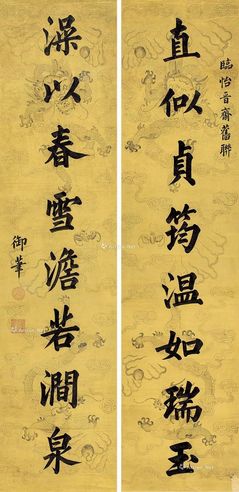 臨怡晉齋舊聯
直似貞筠温如瑞玉
澡以春雪澹若澗泉
御筆